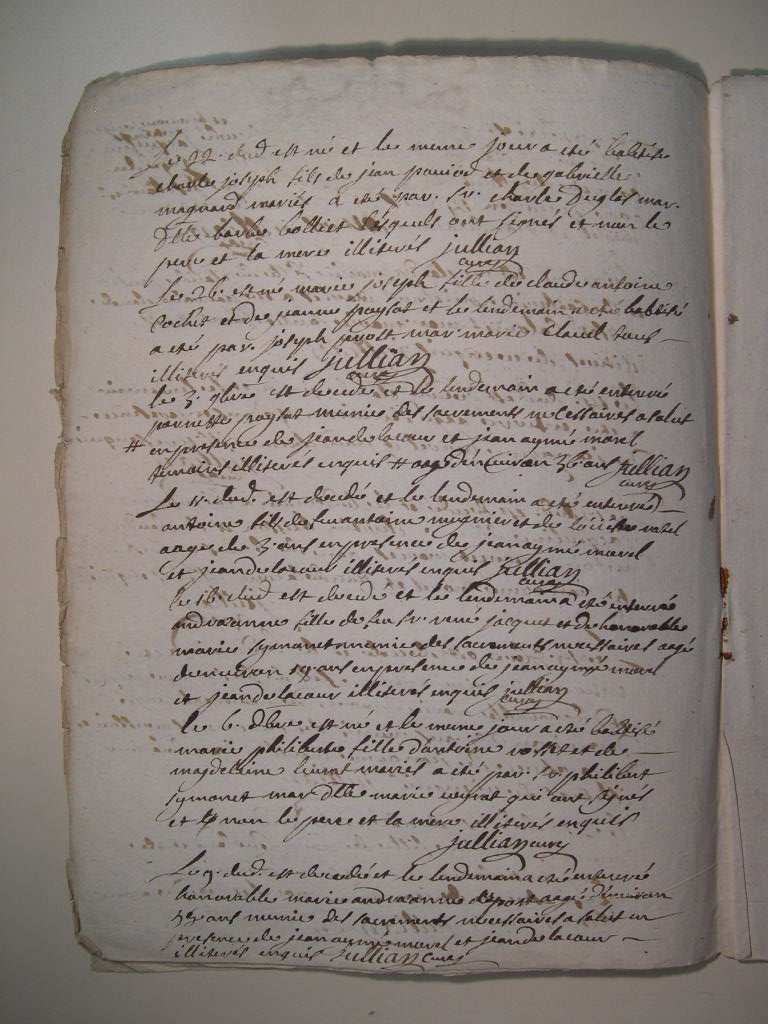 Le 22 dud. est né et le meme jour a eté batisé
charle joseph fils de jean et de gabrielle
magnard mariés a eté par. Sr. charle mar.
Dlle barbe bolliet lesquels ont signés et non le
pere et la mere illiterés jullian
curé
Le 26. est né marie joseph fille de claude antoine
rochet et de jeanne paysat et le lendemain a eté batisé
a eté par. joseph mar. marie tous
illiterés enquis jullian
curé
le 3. 9bre est decedé et le lendemain a eté enterré
pernette paysat munie des sacrements necessaires a salut
# en presence de jean delacour et jean aymé morel
temoins illiterés enquis # aagé denviron 36 ans jullian
curé
Le 11. dud. est decedé et le lendemain a eté enterré
antoine fils de feu antoine et de
aagé de 3. ans en presence de jean aymé morel
et jean delacour illiterés enquis jullian
curé
le 16 dud. est decedé et le lendemain a eté enterré
andreanne fille de feu Sr. rené jacquet et de honorable
marie symonet munie des sacrements necessaires aagé
denviron 19 ans en presence de jean aymé morel
et jean delacour illiterés enquis jullian
curé
le 6. Dbre est né et le meme jour a eté batisé
marie philiberte fille d'antoine et de
magdelaine mariés a eté par. Sr. philibert
symonet mar. Dlle marie qui ont signés
et non le pere et la mere illiterés enquis
jullian curé
Le 9. dud. est decedé et le lendemain a eté enterré
honorable marie andreanne aagé denviron
ans munie des sacrements necessaires a salut en
presence de jean aymé morel et jean delacour
illiterés enquis jullian curé